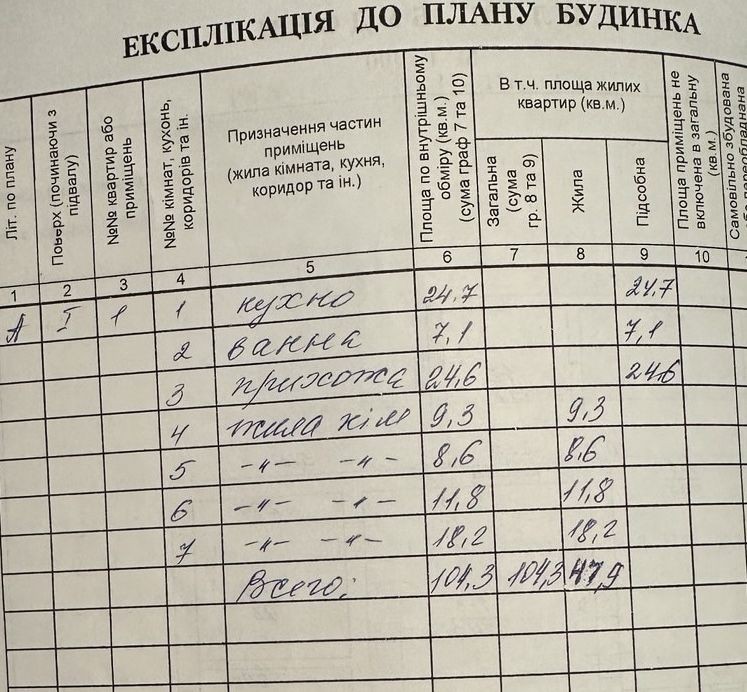 ЕКСПЛІКАЦІЯ ДО ПЛАНУ БУДИНКА
Літ. по плану
Поверх (починаючи з підвалу)
№№ квартир або приміщень
№№ кімнат, кухонь, коридорів та ін.
Призначення частин
приміщень
(жила кімната, кухня,
коридор та ін.)
Площа по внутрішньому обміру (кв.м.) (сума граф 7 та 10)
В т.ч. площа жилих
квартир (кв.м.)
Загальна (сума гр. 8 та 9)
Жила
Підсобна
Площа приміщень не включена в загальну (кв.м.)
Самовільно збудована
1 2 3 4 5 6 7 8 9 10
А I 1 1 кухно 24.7 24,7
2 ванна 7,1 7,1
3 прихожа 24,6 24,6
4 жила кім 9,3 9,3
5 -"- -"- 8,6 8,6
6 -"- -"- 11,8 11,8
7 -"- -"- 18,2 18,2
Всего: 104,3 104,3 47,9